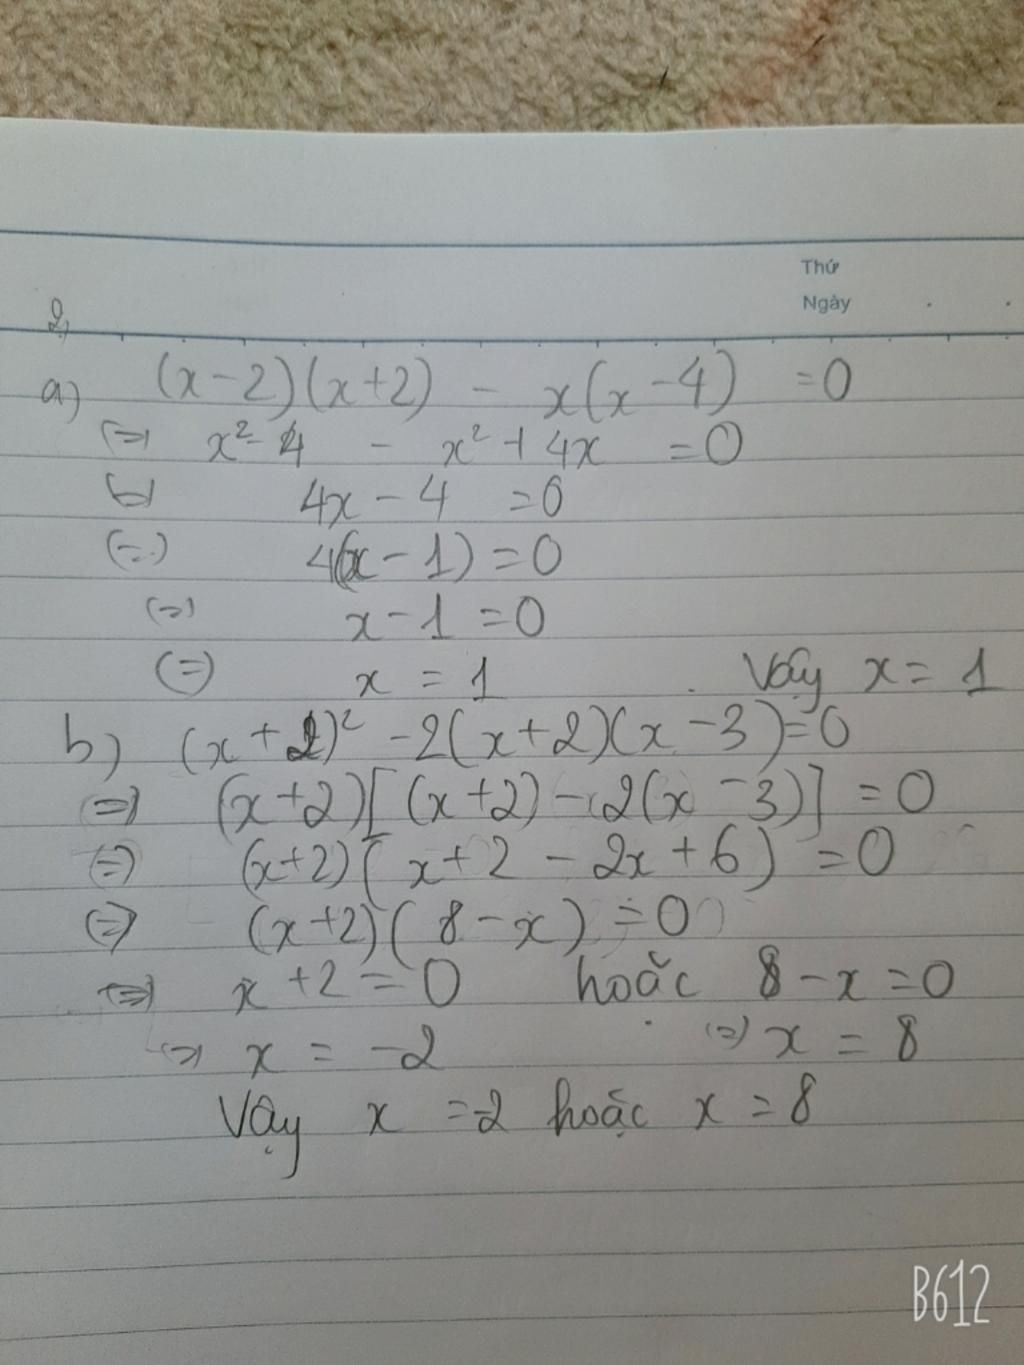 Thứ
Ngày
2,
a) (x-2)(x+2) - x(x-4) =0
(=) x²-4 - x²+4x =0
(=) 4x-4 =0
(=) 4(x-1)=0
(=) x-1=0
(=) x = 1 Vậy x= 1
b) (x+2)² -2(x+2)(x-3)=0
(=) (x+2)[(x+2)-2(x-3)] =0
(=) (x+2)(x+2-2x+6) =0
(=) (x+2)(8-x) =0
(=) x+2=0 hoặc 8-x=0
(=) x = -2 (=) x = 8
Vậy x =-2 hoặc x = 8
B612